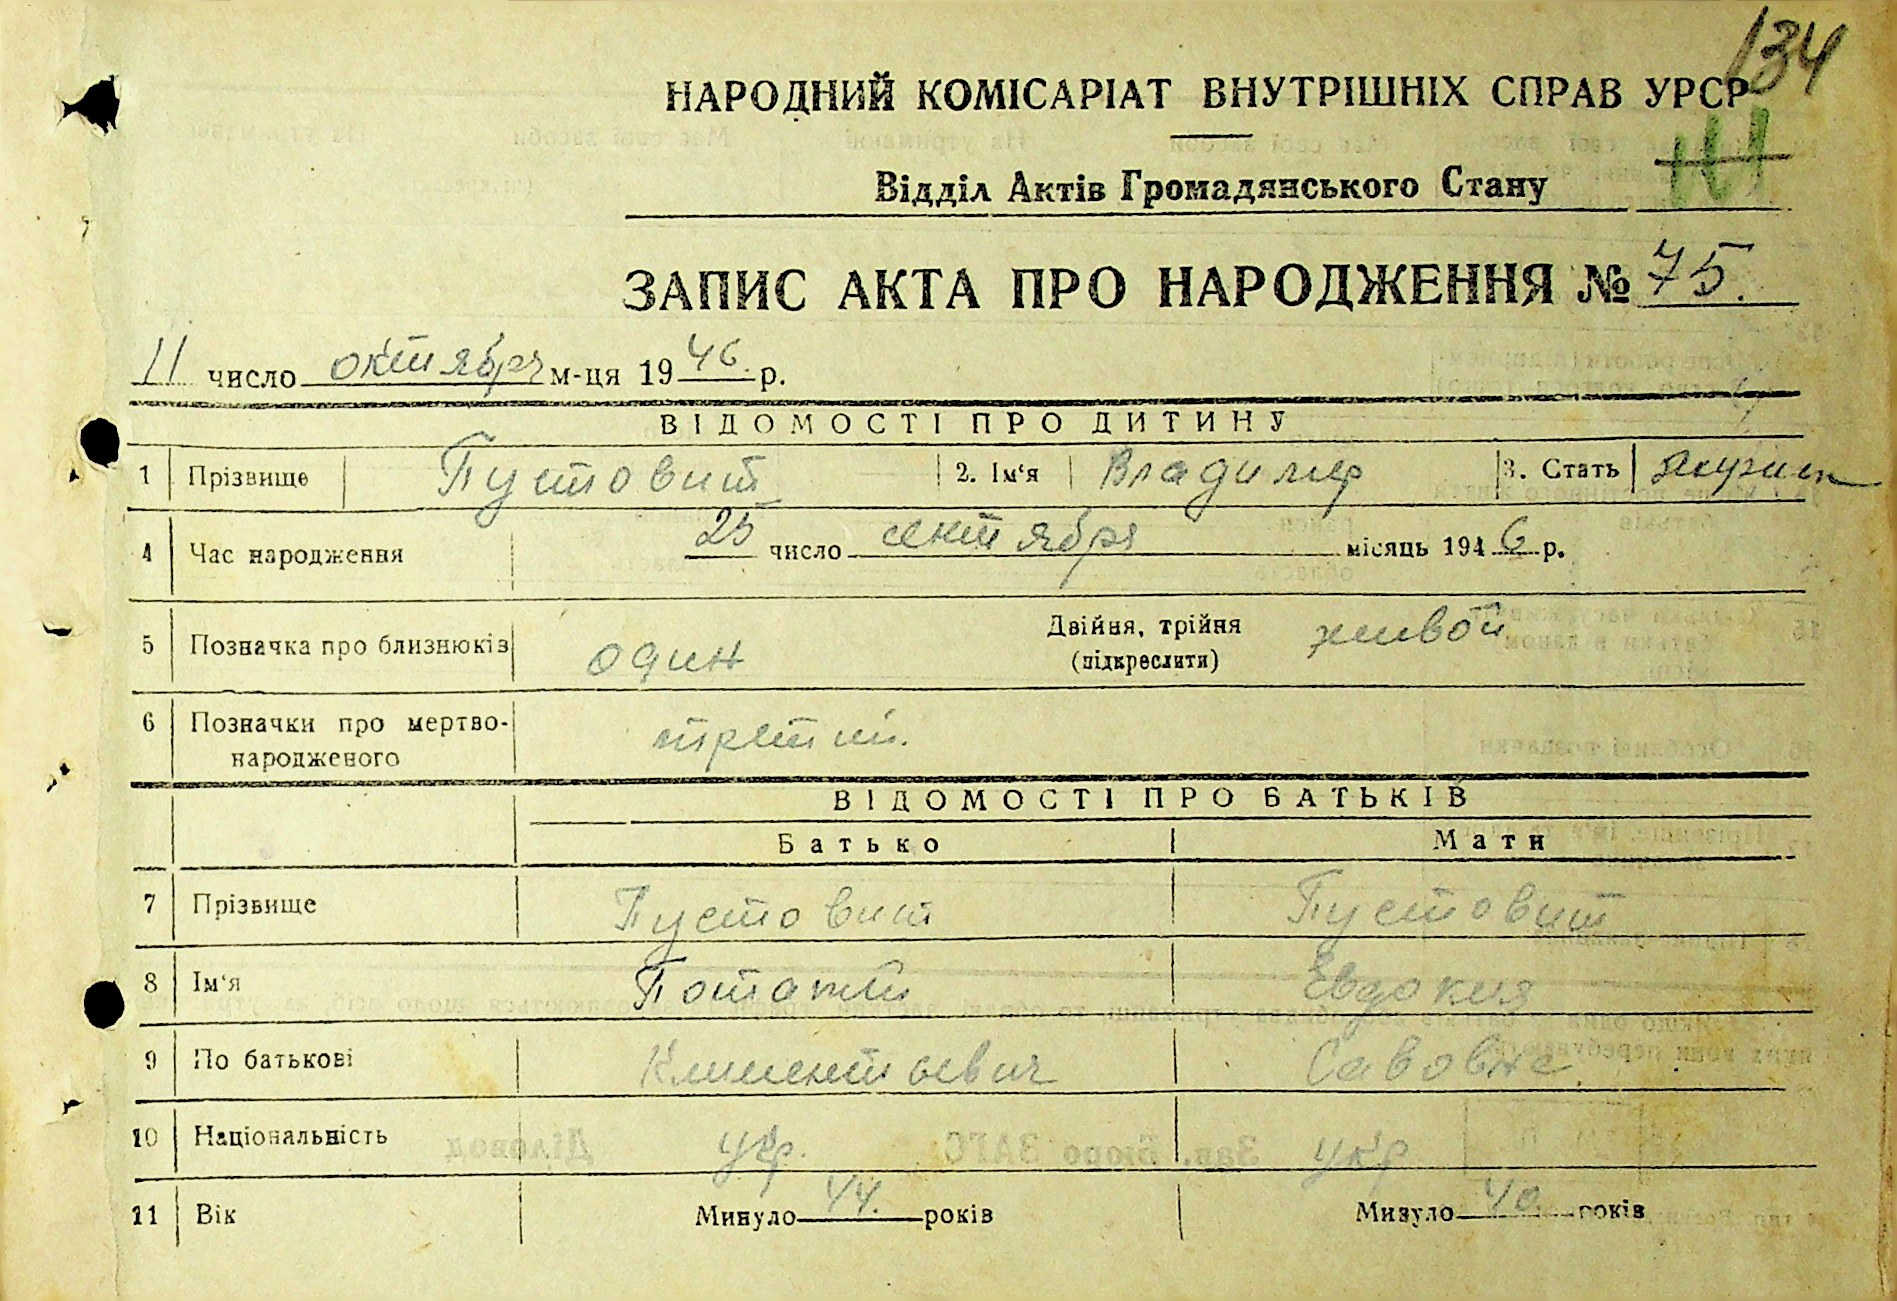 134
НАРОДНИЙ КОМІСАРІАТ ВНУТРІШНІХ СПРАВ УРСР
Відділ Актів Громадянського Стану
ЗАПИС АКТА ПРО НАРОДЖЕННЯ № 75.
11 число октября м-ця 1946. р.
ВІДОМОСТІ ПРО ДИТИНУ
1 Прізвище Пустовит 2. Ім‘я Владимир 3. Стать мужск
4 Час народження 25 число сентября місяць 1946 р.
5 Позначка про близнюків один Двійня, трійня (підкреслити) живой
6 Позначки про мертво-
народженого третий.
ВІДОМОСТІ ПРО БАТЬКІВ
Батько Мати
7 Прізвище Пустовит Пустовит
8 Ім‘я Потапий Евдокия
9 По батькові Климентьевич Савовна
10 Національність укр. укр
11 Вік Минуло 44. років Минуло 40. років